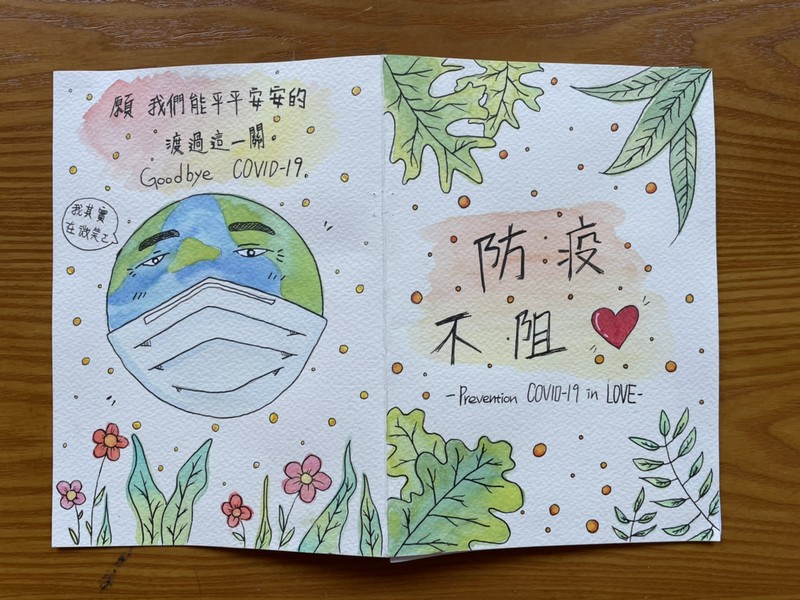 願 我們能平平安安的
渡過這一關。
Goodbye COVID-19.
我其實
在微笑ㄛ
防疫
不阻
-Prevention COVID-19 in LOVE-